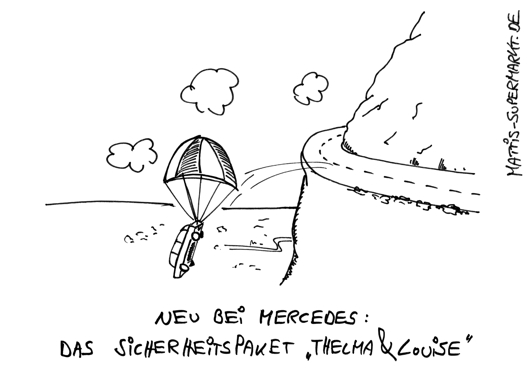 MATTIS-SUPERMARKT.DE
NEU BEI MERCEDES:
DAS SICHERHEITSPAKET „THELMA & LOUISE"